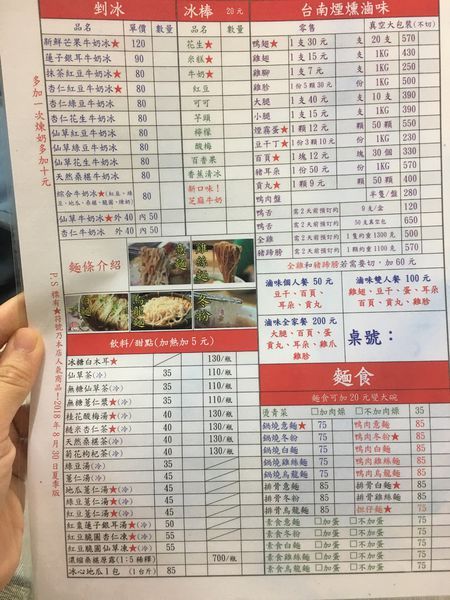 剉冰
品名 單價 數量
新鮮芒果牛奶冰★ 120
蓮子銀耳牛奶冰 90
抹茶紅豆牛奶冰★ 80
杏仁紅豆牛奶冰★ 80
杏仁綠豆牛奶冰 80
杏仁花生牛奶冰 80
仙草紅豆牛奶冰 80
仙草綠豆牛奶冰 80
仙草花生牛奶冰 80
天然桑椹牛奶冰 80
綜合牛奶冰★ 80
仙草牛奶冰★ 外40 內50
杏仁牛奶冰 外40 內50
多加一次煉奶多加十元
冰棒 20元
品名 數量
花生★
米糕★
牛奶★
紅豆
可可
芋頭
檸檬
酸梅
百香果
香蕉清冰
新口味!
芝麻牛奶
台南煙燻滷味
零售 真空大包裝(不切)
鴨翅★ 1支30元 支 20支 570
雞翅 1支15元 支 1KG 430
雞腳 1支7元 支 1KG 250
雞胗 1份5顆30元 份 1KG 430
大腿 1支40元 支 10支 390
小腿 1支15元 支 1KG 260
煙燻蛋★ 1顆12元 顆 50顆 550
豆干丁★ 1份3顆10元 份 1KG 300
百頁★ 1塊12元 塊 30個 330
豬耳朵 1份50元 份 1KG 575
貢丸★ 1顆9元 顆 50顆 400
鴨肉盤 半隻/盤 280
鴨舌 需2天前預訂約 9支/盒 120
鴨舌 需2天前預訂約 50支真空包 650
全雞 需2天前預訂約 1隻約重 1300元
豬蹄膀 需2天前預訂約 1個約重 1100元
全雞和豬蹄膀若需要切,加60元
滷味個人餐 50元
豆干、百頁、
耳朵、貢丸
滷味雙人餐 100元
雞翅、豆干、蛋、
百頁、貢丸、耳朵、
雞胗
滷味全家餐 200元
大腿、百頁、蛋、
貢丸、耳朵、雞爪
雞胗
桌號:
麵條介紹
雞絲麵
冬粉
烏龍麵
飲料/甜點(加熱加5元)
冰糖白木耳★ 130/瓶
仙草茶(冷) 35 110/瓶
無糖仙草茶(冷) 35 110/瓶
無糖薏仁漿★(冷) 35 110/瓶
桂花酸梅湯★(冷) 40 130/瓶
糙米杏仁茶★(冷) 40 130/瓶
天然桑椹茶(冷) 40 130/瓶
菊花枸杞茶(冷) 40 130/瓶
綠豆湯(冷) 35
薏仁湯(冷) 45
地瓜薏仁湯★(冷) 45
綠豆薏仁湯(冷) 45
紅豆薏仁湯★(冷) 45
紅棗蓮子銀耳湯★(冷) 50
紅豆脆圓杏仁凍(冷) 55
紅豆脆圓仙草凍★(冷) 55
濃縮桑椹原露(1:5稀釋) 700/瓶
冰心地瓜1包 (1台斤) 85
P.S 標有★符號乃本店人氣商品!2018年8月30日夏季版
麵食
麵食可加20元變大碗
燙青菜 □加肉燥 □不加肉燥 35
鍋燒意麵★ 75 鴨肉意麵 85
鍋燒冬粉 75 鴨肉冬粉★ 85
鍋燒白麵 75 鴨肉白麵 85
鍋燒雞絲麵 75 鴨肉雞絲麵 85
鍋燒烏龍麵 75 鴨肉烏龍麵 85
排骨意麵 85 排骨雞絲麵 85
排骨冬粉 85 排骨烏龍麵 85
排骨白麵 85 担仔麵★
素食意麵 □加蛋 □不加蛋 75
素食冬粉 □加蛋 □不加蛋 75
素食白麵 □加蛋 □不加蛋 75
素食雞絲麵 □加蛋 □不加蛋 75
素食烏龍麵 □加蛋 □不加蛋 75